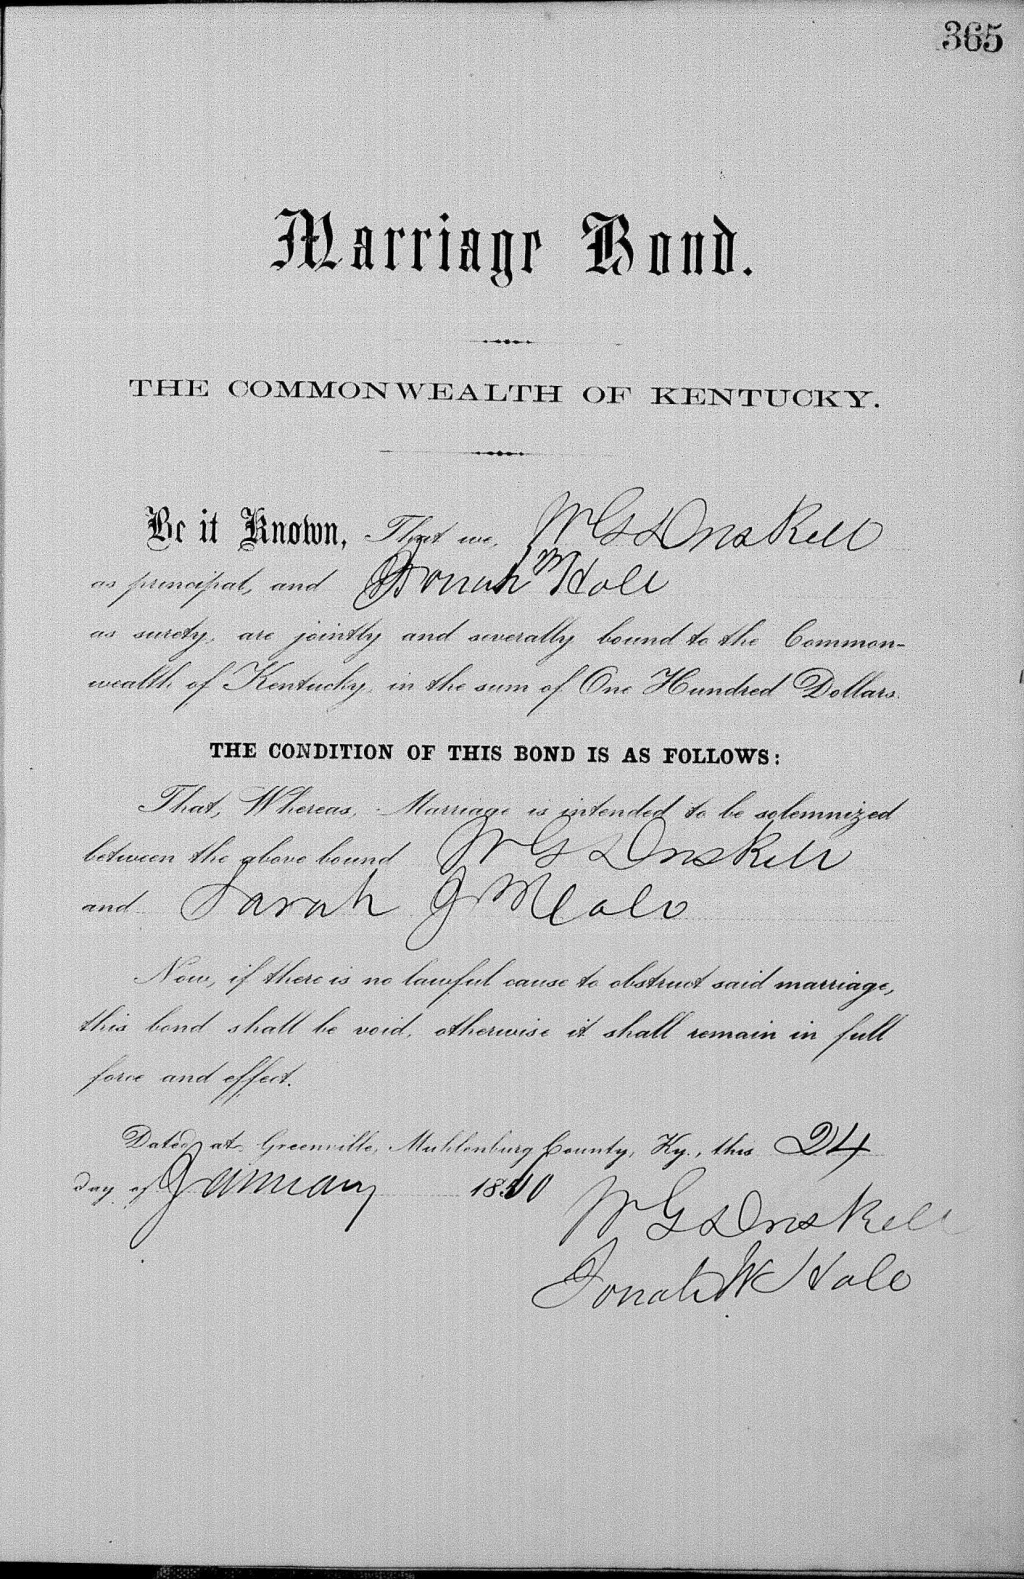 365
Marriage Bond.
THE COMMONWEALTH OF KENTUCKY.
Be it Known, That we, W G Driskell
as principal, and Jonah W Hale
as surety, are jointly and severally bound to the Common-
wealth of Kentucky, in the sum of One Hundred Dollars.
THE CONDITION OF THIS BOND IS AS FOLLOWS:
That, Whereas, Marriage is intended to be solemnized
between the above bound W G Driskell
and Sarah J
Now, if there is no lawful cause to obstruct said marriage,
this bond shall be void, otherwise it shall remain in full
force and effect.
Dated at Greenville, Muhlenburg County, Ky., this 24
day of January 18
W G Driskell
Jonah W Hale